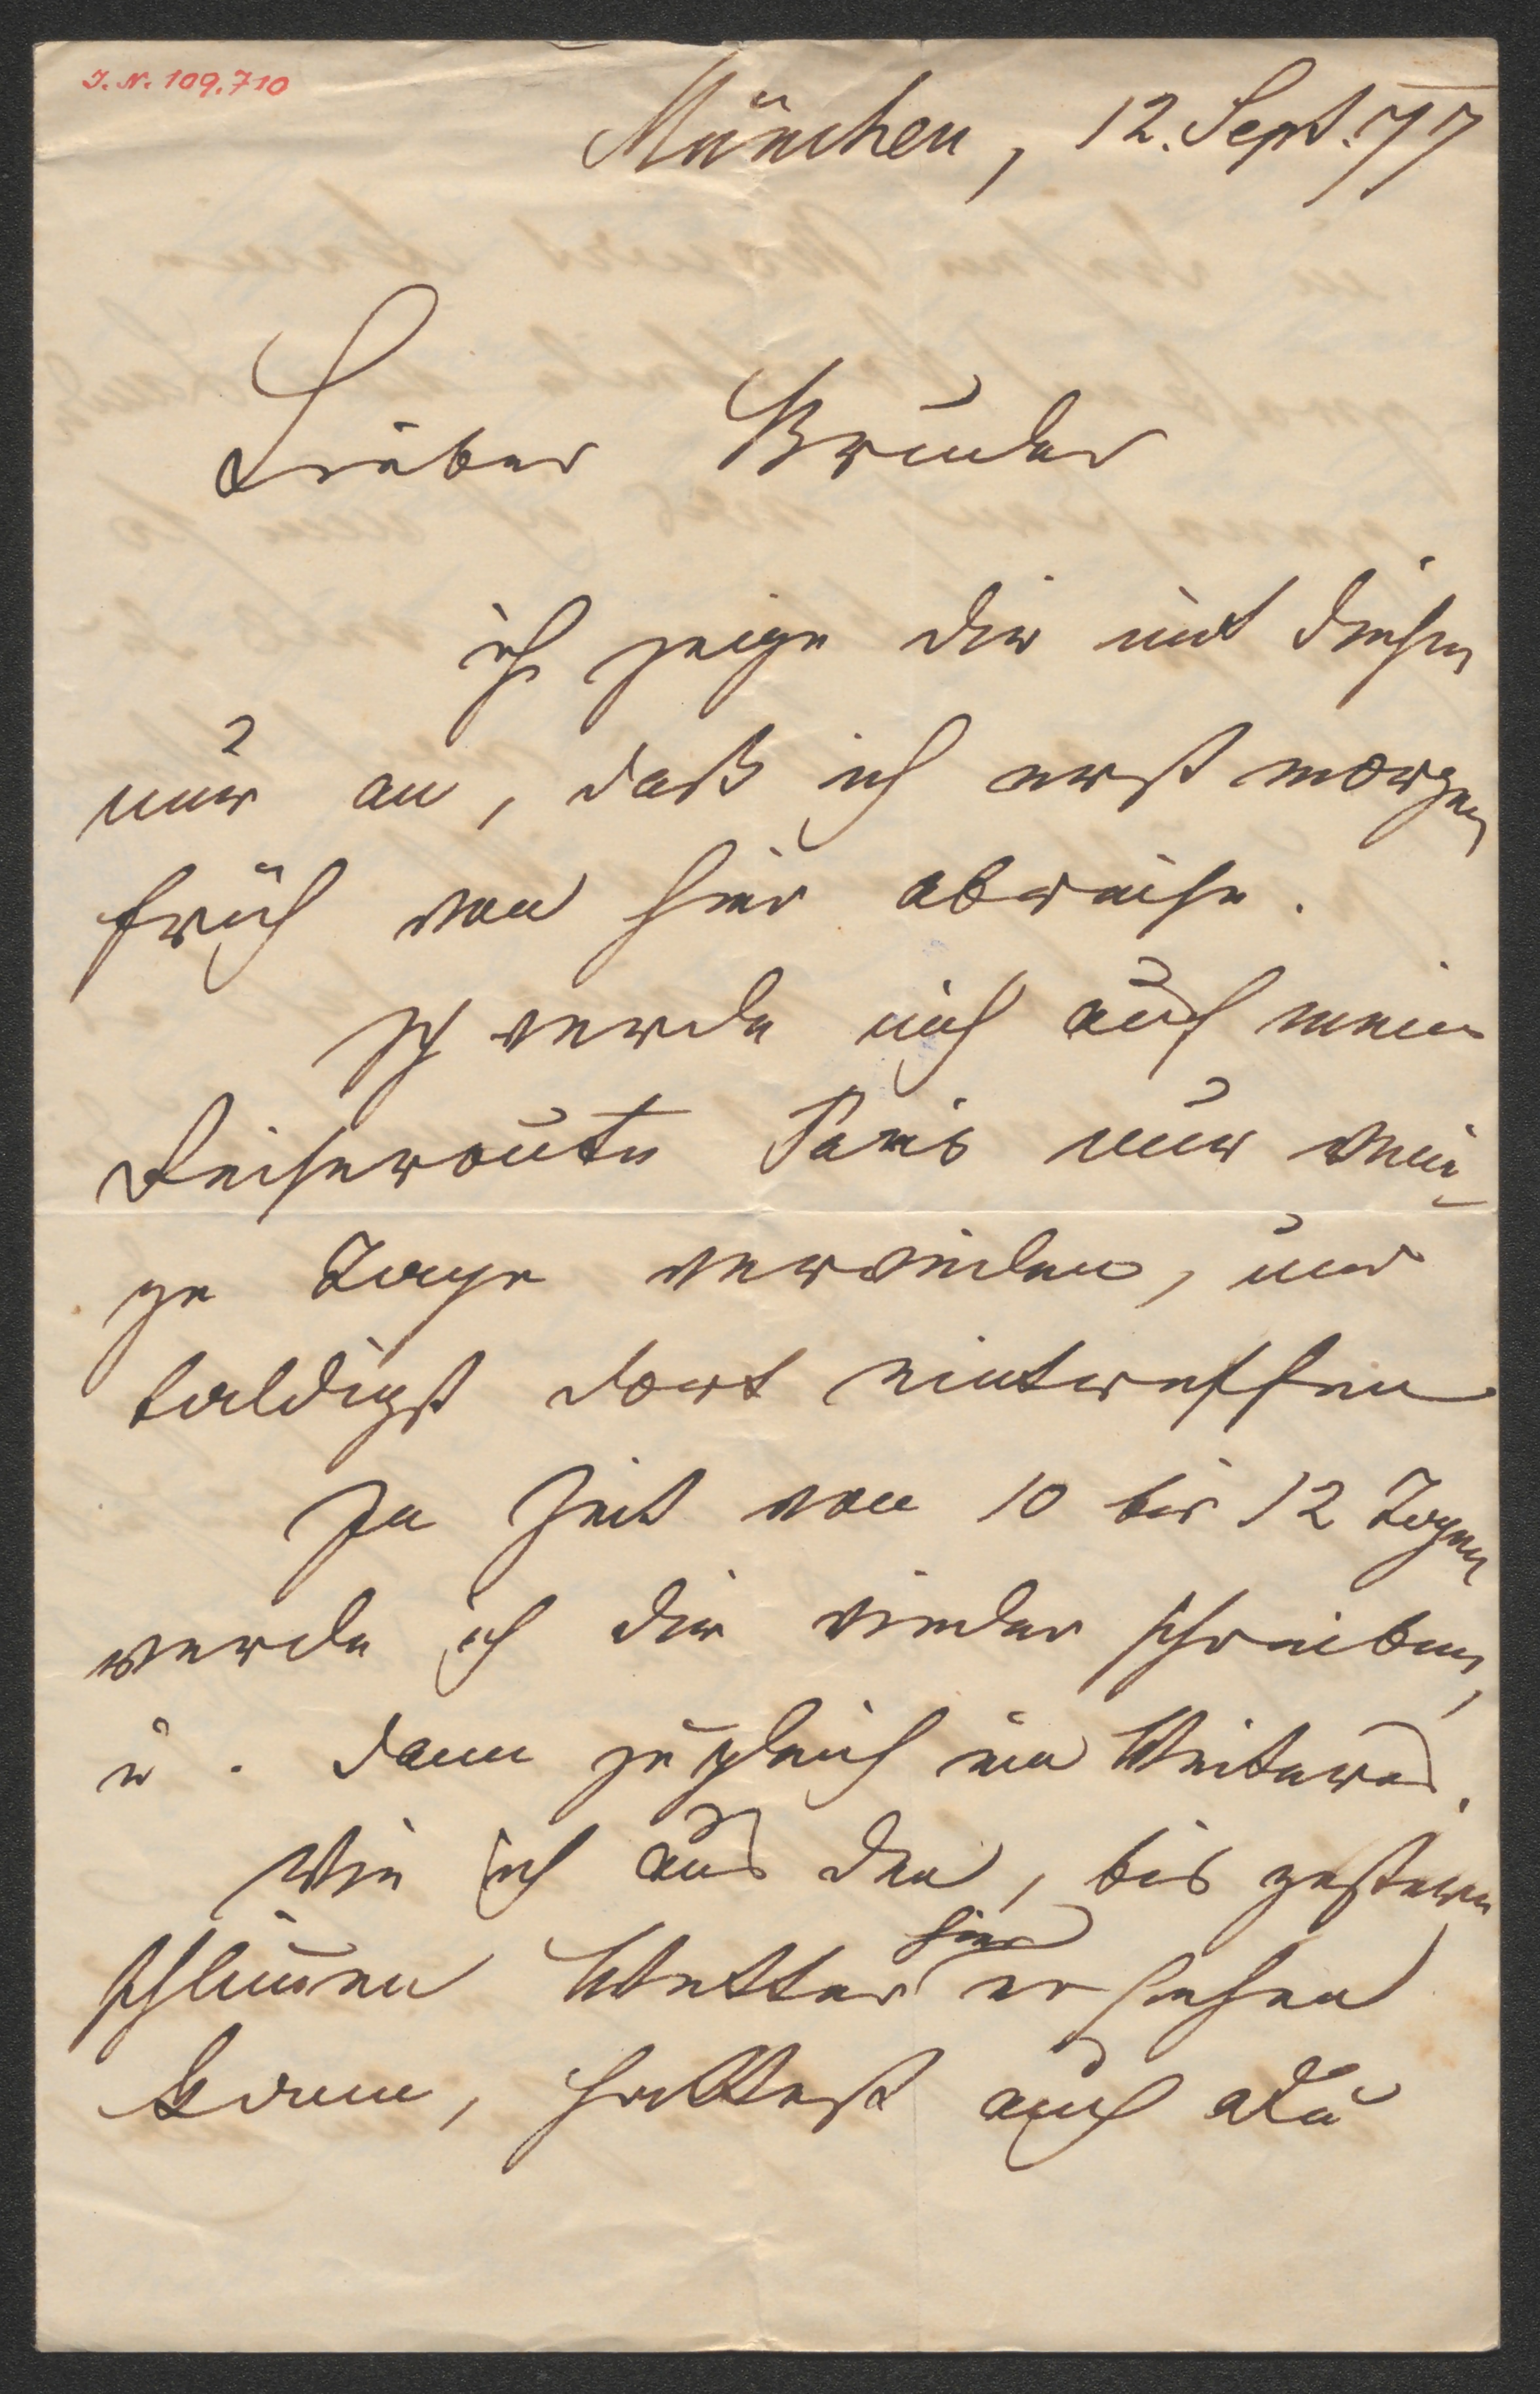 J. N. 109.710
München, 12. Sept. 77
Lieber Bruder
ich zeige dir mit diesen
nur an, daß ich erst morgen
früh von hier abreise.
Ich werde mich auf mein
Reiseroute Paris nur weni-
ge Tage verweilen, und
baldigst dort eintreffen
In Zeit von 10 bis 12 Tagen
werde ich dir wieder schreiben,
u. dann zugleich ein Weiteres.
Wie ich aus den, bis gestern
schlim̅en Wetter hier ersehen
kann, hattest auch du